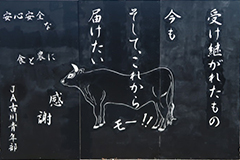 受け継がれたもの
今も
そして、これから
モー!!
届けたい
安心安全な
食と農に
感謝
JA古川青年部